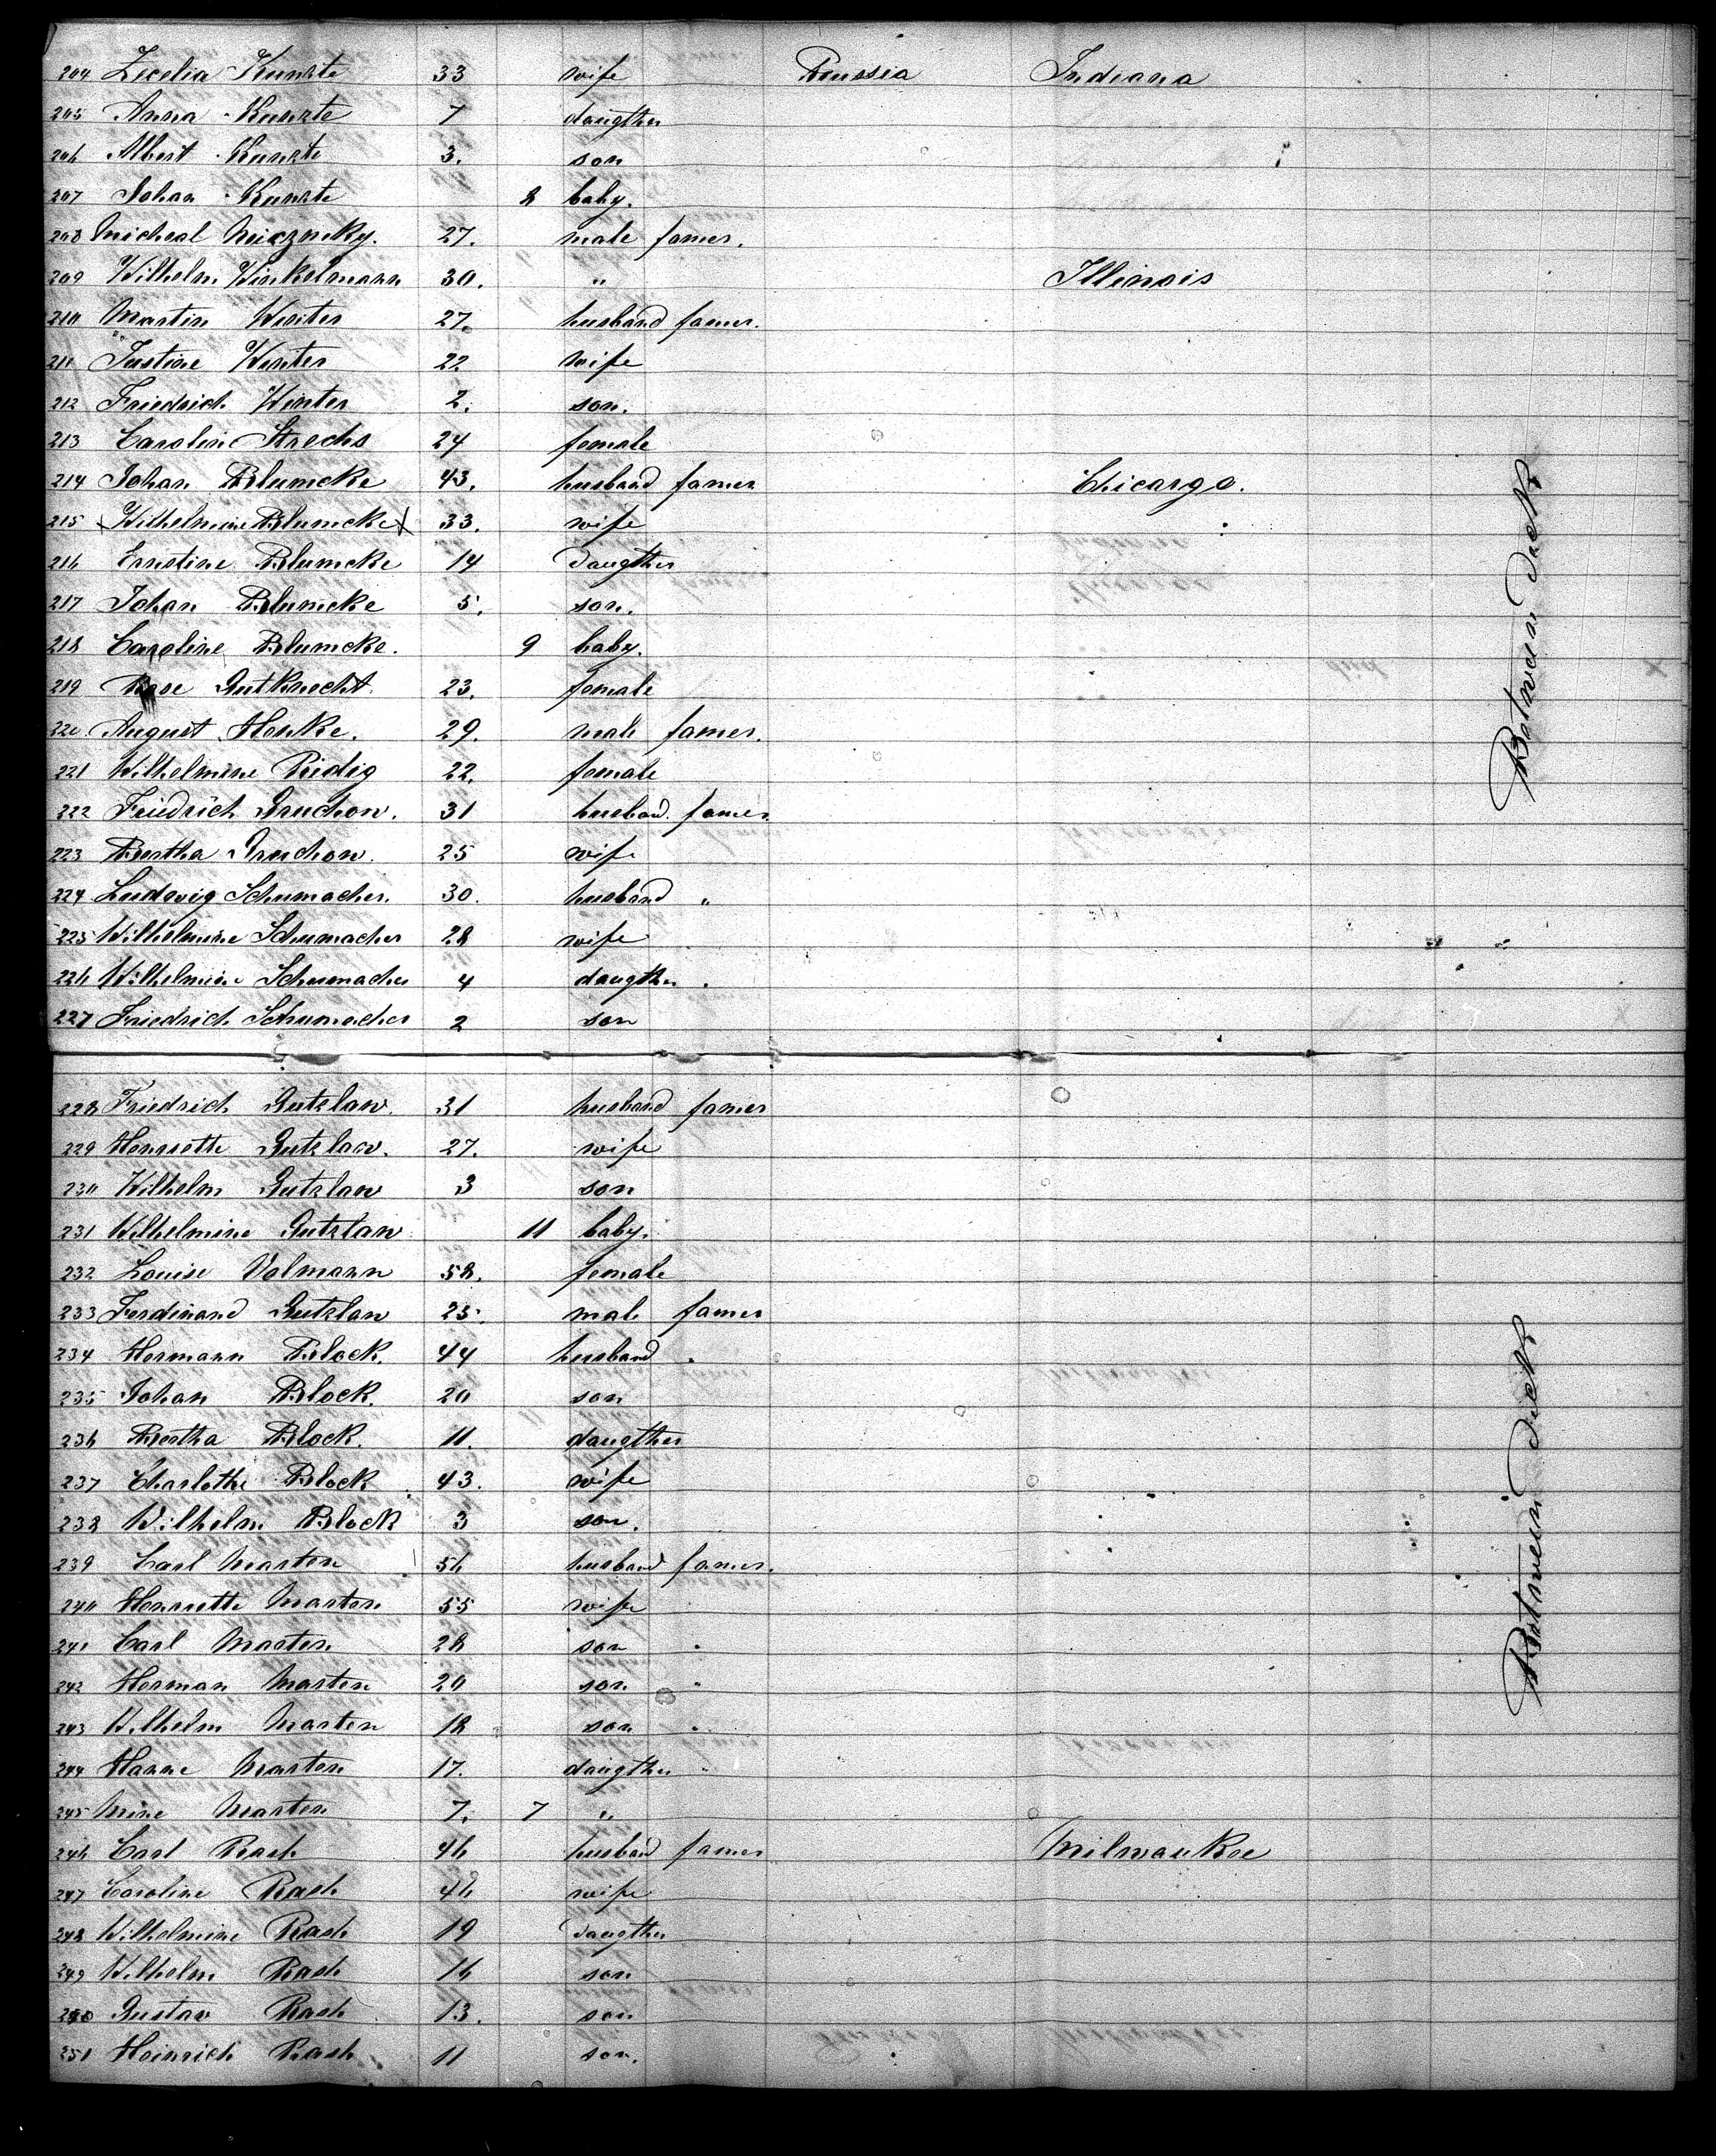 204 Zecelia Kunzte 33 wife Prussia Indiana
205 Anna Kunzte 7 daugther
206 Albert Kunzte 3. son
207 Johan Kunzte 8 baby.
208 Micheal 27. male famer.
209 Wilhelm Winkelmann 30. " Illinois
210 Martin Winter 27. husband famer.
211 Justine Winter 22 wife
212 Friedrich Winter 2. son.
213 Carolin Strechs 24 female
214 Johan Blumcke 43. husband famer Chicargo.
215 Wilhelmine Blumcke 33. wife
216 Ernstine Blumcke 14 daugther
217 Johan Blumcke 5. son.
218 Caroline Blumcke. 9 baby.
219 Rose Gutknecht. 23. female
220 August Henke. 29. male famer.
221 Wilhelmine Riedig 22. female
222 Friedrich Gruchow. 31 husband. famer.
223 Bertha Gruchow. 25 wife
224 Ludwig Schumacher. 30. husband "
225 Wilhelmine Schumacher 28 wife
226 Wilhelmine Schumacher 4 daugther .
227 Friedrich Schumacher 2 son
228 Friedrich Gutzlaw. 31 husband famer
229 Henriette Gutzlaw. 27. wife
230 Wilhelm Gutzlaw 3 son
231 Wilhelmine Gutzlaw 11 baby.
232 Louise Volmann 58. female
233 Ferdinand Gutzlaw 25. male famer
234 Hermann Block. 44 husband "
235 Johan Block. 20 son
236 Bertha Block. 11. daugther
237 Charlothe Block 43. wife
238 Wilhelm Block 3 son.
239 Carl Marten 56 husband famer.
240 Henriette Marten 55 wife
241 Carl Marten 28 son "
242 Herman Marten 20 son "
243 Wilhelm Marten 18 son "
244 Hanne Marten 17. daugther "
245 Mine Marten 7. 7 "
246 Carl Rash 46 husband famer Milwaukee
247 Caroline Rash 46 wife
248 Wilhelmine Rash 19 daugther
249 Wilhelm Rash 16 son
250 Gustav Rash 13. son
251 Heinrich Rash 11 son.
Between Deck
Between Deck